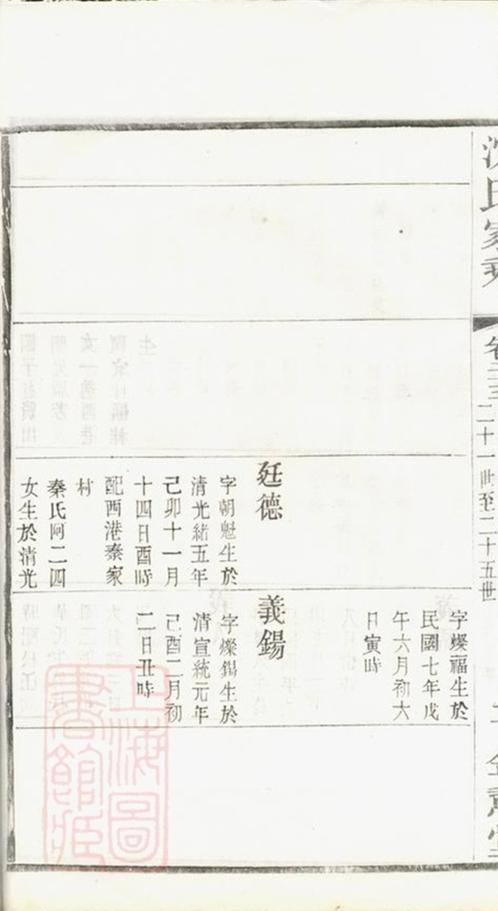 沈氏家乘
卷三三
二十一世至二十五世
字燦福生於
民國七年戊
午六月初六
日寅時
廷德
字朝魁生於
清光緒五年
己卯十一月
十四日酉時
配西港秦家
村
秦氏阿二四
女生於清光
義錫
字燦錫生於
清宣統元年
己酉二月初
二日丑時
上海圖
書館藏